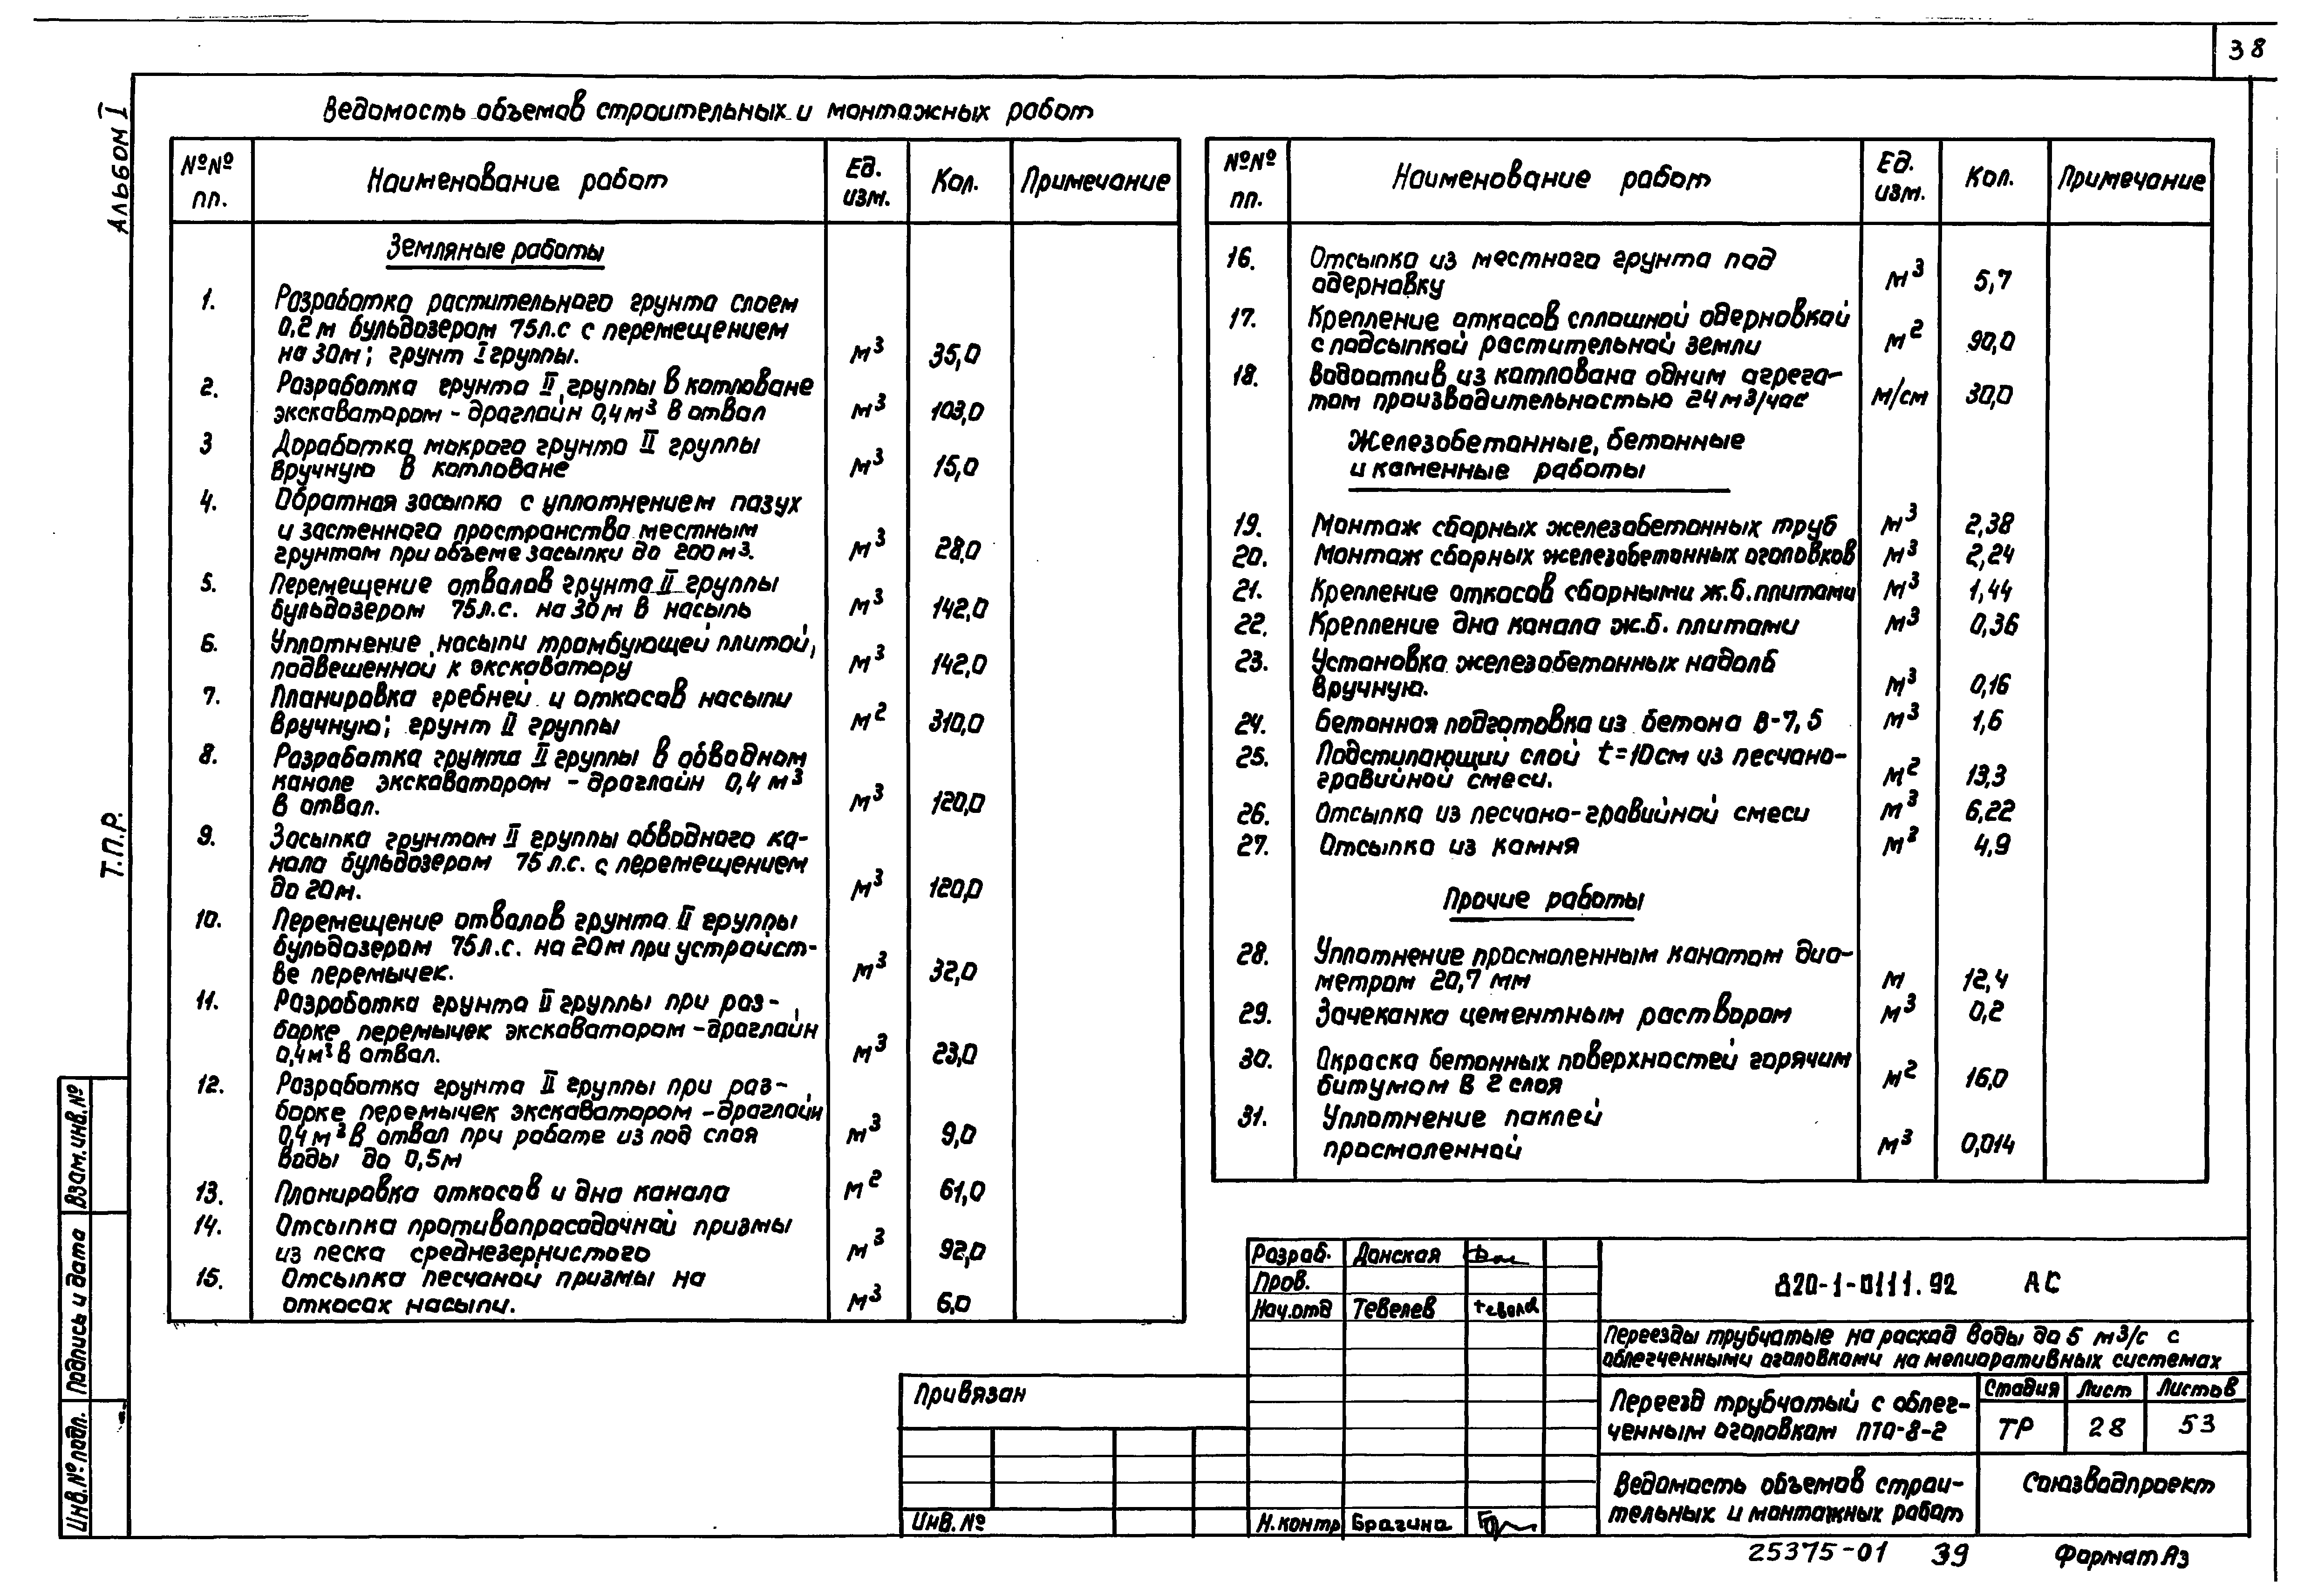 38
Альбом I
Т.П.Р.
Ведомость объемов строительных и монтажных работ
№№ пп.
Наименование работ
Ед. изм.
Кол.
Примечание
Земляные работы
1. Разработка растительного грунта слоем
0,2м бульдозером 75л.с с перемещением
на 30м; грунт I группы. м³ 35,0
2. Разработка грунта II группы в котловане
экскаватором - драглайн 0,4м³ в отвал м³ 103,0
3 Доработка мокрого грунта II группы
вручную в котловане м³ 15,0
4. Обратная засыпка с уплотнением пазух
и застенного пространства местным
грунтом при объеме засыпки до 200м³. м³ 28,0
5. Перемещение отвалов грунта II группы
бульдозером 75л.с. на 30м в насыпь м³ 142,0
6. Уплотнение насыпи трамбующей плитой,
подвешенной к экскаватору м³ 142,0
7. Планировка гребней и откосов насыпи
вручную; грунт II группы м² 310,0
8. Разработка грунта II группы в обводном
канале экскаватором - драглайн 0,4 м³
в отвал. м³ 120,0
9. Засыпка грунтом II группы обводного ка-
нала бульдозером 75 л.с. с перемещением
до 20м. м³ 120,0
10. Перемещение отвалов грунта II группы
бульдозером 75л.с. на 20м при устройст-
ве перемычек. м³ 32,0
11. Разработка грунта II группы при раз-
борке перемычек экскаватором - драглайн
0,4м³ в отвал. м³ 23,0
12. Разработка грунта II группы при раз-
борке перемычек экскаватором - драглайн
0,4м³ в отвал при работе из под слоя
воды до 0,5м м³ 9,0
13. Планировка откосов и дна канала м² 61,0
14. Отсыпка противопросадочной призмы
из песка среднезернистого м³ 92,0
15. Отсыпка песчаной призмы на
откосах насыпи. м³ 6,0
№№ пп.
Наименование работ
Ед. изм.
Кол.
Примечание
16. Отсыпка из местного грунта под
одерновку м³ 5,7
17. Крепление откосов сплошной одерновкой
с подсыпкой растительной земли м² 90,0
18. Водоотлив из котлована одним агрега-
том производительностью 24м3/час м/см 30,0
Железобетонные, бетонные
и каменные работы
19. Монтаж сборных железобетонных труб м³ 2,38
20. Монтаж сборных железобетонных оголовков м³ 2,24
21. Крепление откосов сборными ж.б. плитами м³ 1,44
22. Крепление дна канала ж.б. плитами м³ 0,36
23. Установка железобетонных надолб
вручную. м³ 0,16
24. Бетонная подготовка из бетона В-7,5 м³ 1,6
25. Подстилающий слой t=10см из песчано-
гравийной смеси. м² 13,3
26. Отсыпка из песчано-гравийной смеси м³ 6,22
27. Отсыпка из камня м² 4,9
Прочие работы
28. Уплотнение просмоленным канатом диа-
метром 20,7 мм м 12,4
29. Зачеканка цементным раствором м³ 0,2
30. Окраска бетонных поверхностей горячим
битумом в 2 слоя м² 16,0
31. Уплотнение паклей
просмоленной м³ 0,014
Взам.инв.№
Подпись и дата
Инв.№ подл.
Привязан
Инв.№
Разраб. Донская
Пров.
Нач.отд Тевелев
Н.контр Брагина
820-1-0111.92 АС
Переезды трубчатые на расход воды до 5 м3/с с
облегченными оголовками на мелиоративных системах
Переезд трубчатый с облег-
ченным оголовком ПТО-8-2
Стадия Лист Листов
ТР 28 53
Ведомость объемов строи-
тельных и монтажных работ
Союзводпроект
25375-01 39 Формат А3